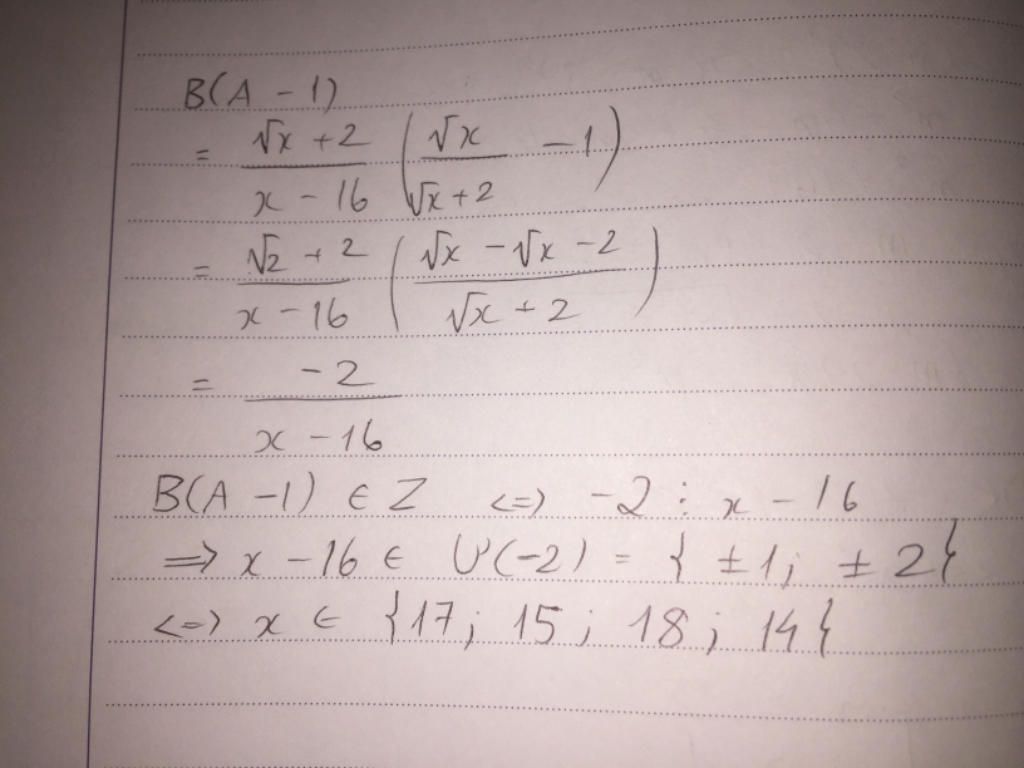 B(A - 1)
= (√x + 2)/(x - 16) (√x/(√x + 2) - 1)
= (√2 + 2)/(x - 16) ((√x - √x - 2)/(√x + 2))
= -2/(x - 16)
B(A - 1) ∈ Z <=> -2 ⋮ x - 16
=> x - 16 ∈ Ư(-2) = {±1; ±2}
<=> x ∈ {17; 15; 18; 14}